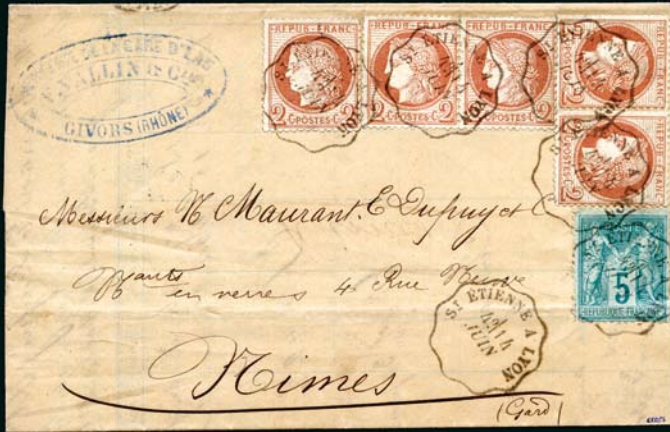 F. VALLIN & Cie
GIVORS (RHÔNE)
REPUB · FRANC
2 C · POSTES · C 2
REPUB · FRANC
2 C · POSTES · C
REPUB · FRANC
POSTES · C 2
REPUB · FRANC
POSTES · C 2
REPUB · FRANC
POSTES · C 2
5
REPUBLIQUE FRANÇ
ST ETIENNE A LYON
Messieurs N Maurant. E Dupuy et C
Nants en verres 4 Rue Neuve
ST ETIENNE A LYON
14
JUIN
Nimes
(Gard)